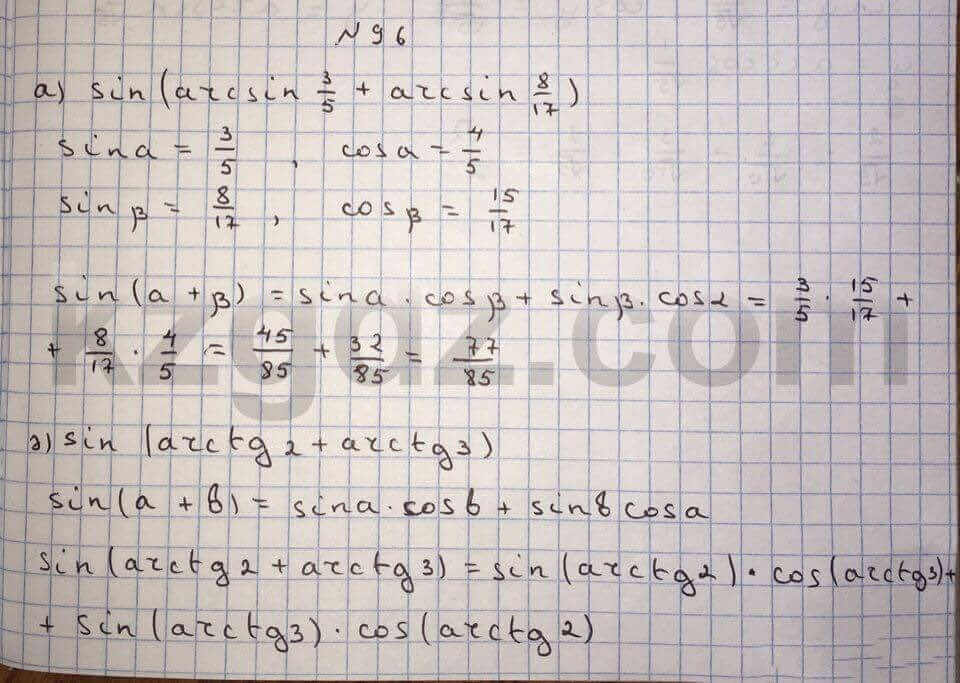 № 96
а) sin(arcsin 3/5 + arcsin 8/17)
sin a = 3/5 , cos a = 4/5
sin β = 8/17 , cos β = 15/17
sin(a + β) = sin a · cos β + sin β · cos α = 3/5 · 15/17 +
+ 8/17 · 4/5 = 45/85 + 32/85 = 77/85
kzgdz.com
д) sin (arctg 2 + arctg 3)
sin(a + b) = sin a · cos b + sin b cos a
sin(arctg 2 + arctg 3) = sin(arctg 2) · cos(arctg 3) +
+ sin(arctg 3) · cos(arctg 2)